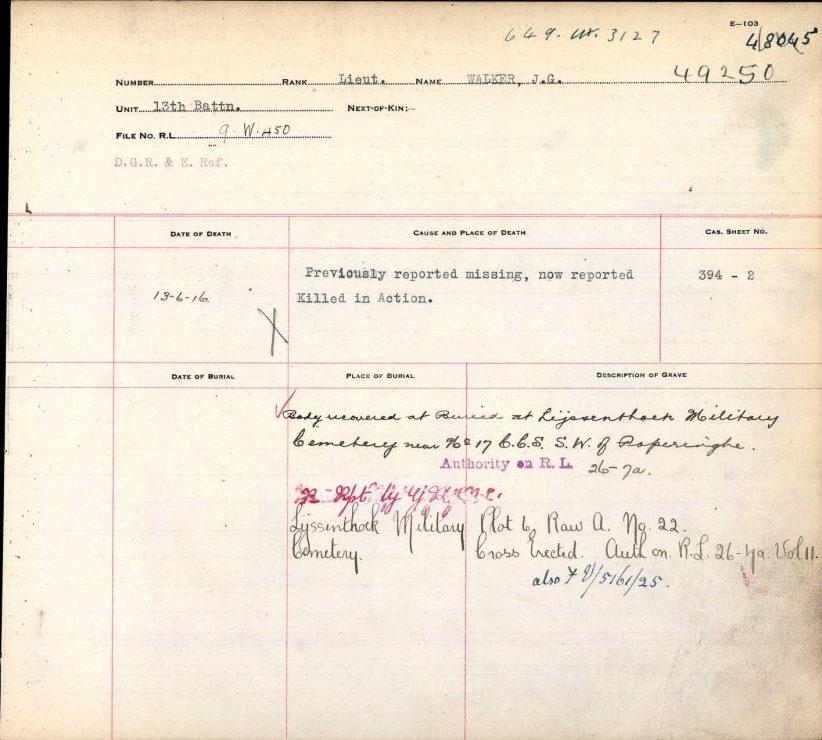 E-103
649. W. 3127
4/8045
NUMBER RANK Lieut. NAME WALKER, J.G. 49250
UNIT 13th Battn. NEXT-OF-KIN:-
FILE NO. R.L. 9. W. 450
D.G.R. & E. Ref.
DATE OF DEATH CAUSE AND PLACE OF DEATH CAS. SHEET NO.
Previously reported missing, now reported 394 - 2
13-6-16. Killed in Action.
DATE OF BURIAL PLACE OF BURIAL DESCRIPTION OF GRAVE
Body recovered at Buried at Lijssenthoek Military
Cemetery near No 17 C.C.S. S.W. of Poperinghe.
Authority on R. L. 26-7a.
Rpt.
Lijssenthock Military Plot 6, Row A. No. 22.
Cemetery. Cross Erected. Auth on. R.L. 26-7a. Vol 11.
also 5161/25.